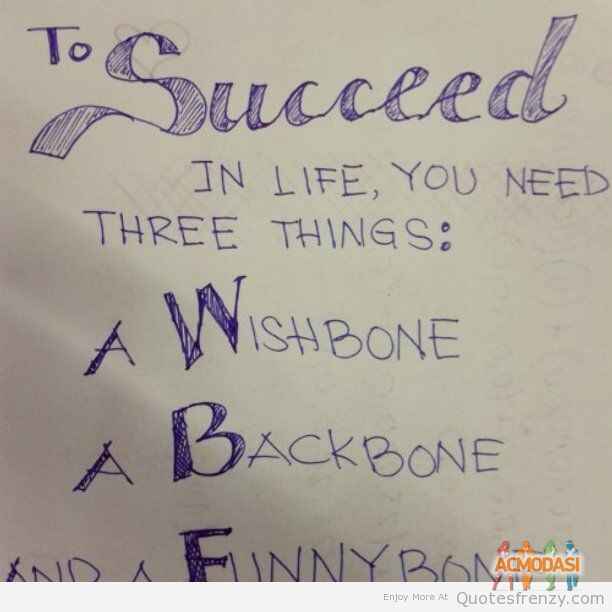 To Succeed
IN LIFE, YOU NEED
THREE THINGS:
A WISHBONE
A BACKBONE
AND A FUNNYBONE
ACMODASI
Enjoy More At Quotesfrenzy.com